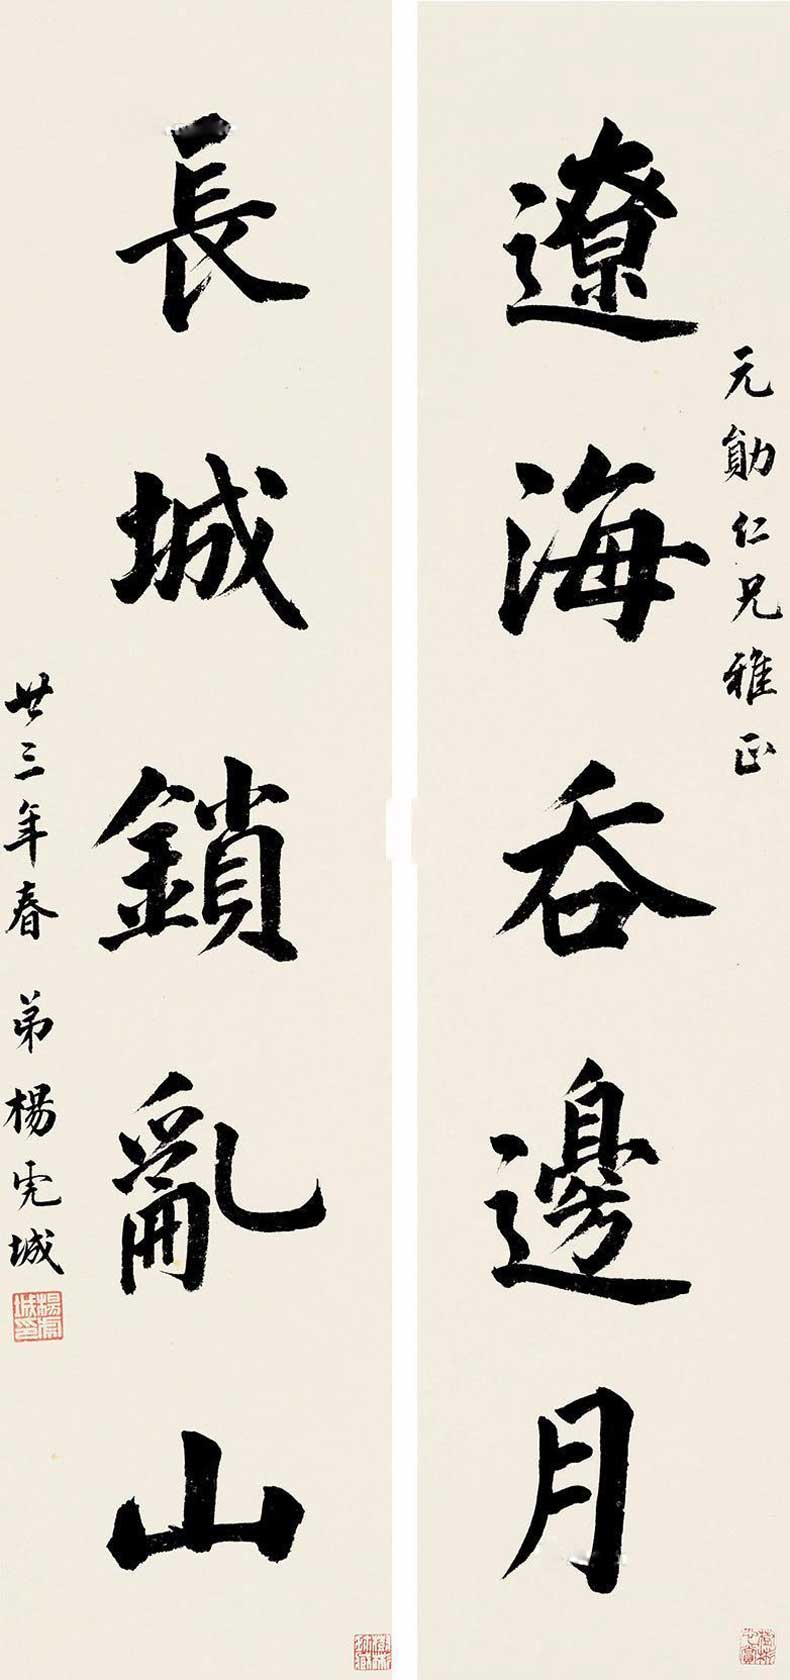 元勛仁兄雅正
遼海吞邊月
長城鎖亂山
廿三年春 弟楊虎城
楊虎城印